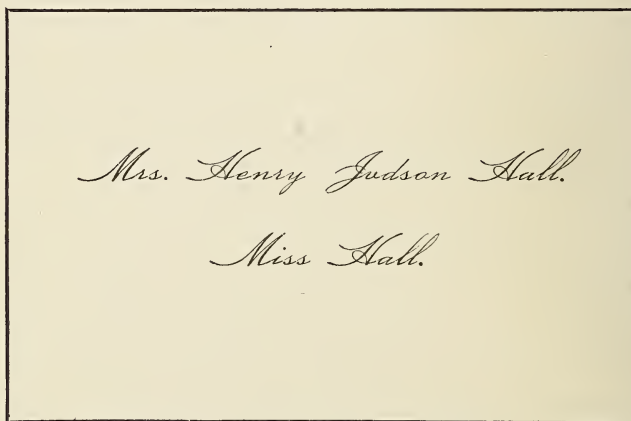 Mrs. Henry Judson Hall.
Miss Hall.